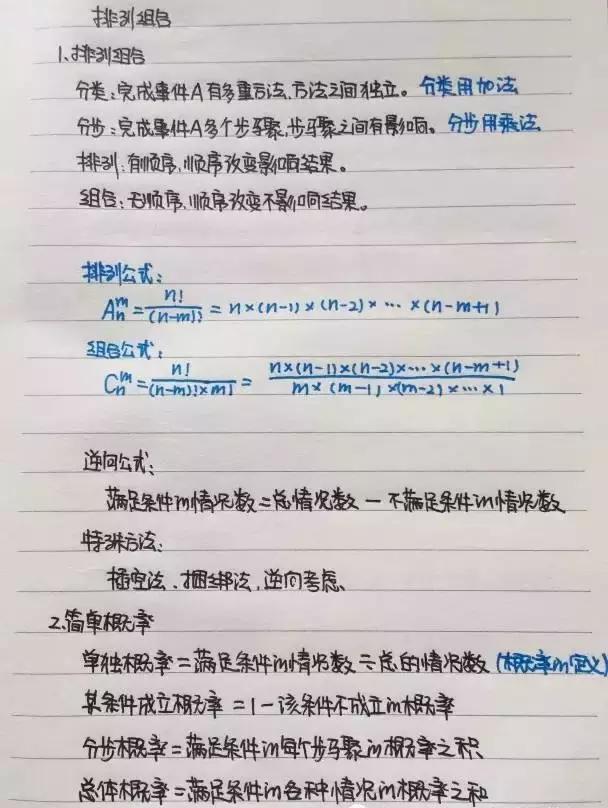 排列组合
1.排列组合
分类:完成事件A有多重方法,方法之间独立。分类用加法
分步:完成事件A多个步骤,步骤之间有影响。分步用乘法
排列:有顺序,顺序改变影响结果。
组合:无顺序,顺序改变不影响结果。
排列公式:
A_n^m = n!/(n-m)! = n×(n-1)×(n-2)×…×(n-m+1)
组合公式:
C_n^m = n!/((n-m)!×m!) = (n×(n-1)×(n-2)×…×(n-m+1))/(m×(m-1)×(m-2)×…×1)
逆向公式:
满足条件的情况数=总情况数-不满足条件的情况数
特殊方法:
插空法、捆绑法,逆向考虑、
2.简单概率
单独概率=满足条件的情况数÷总的情况数(概率的定义)
某条件成立概率=1-该条件不成立的概率
分步概率=满足条件的每个步骤的概率之积
总体概率=满足条件的各种情况的概率之和